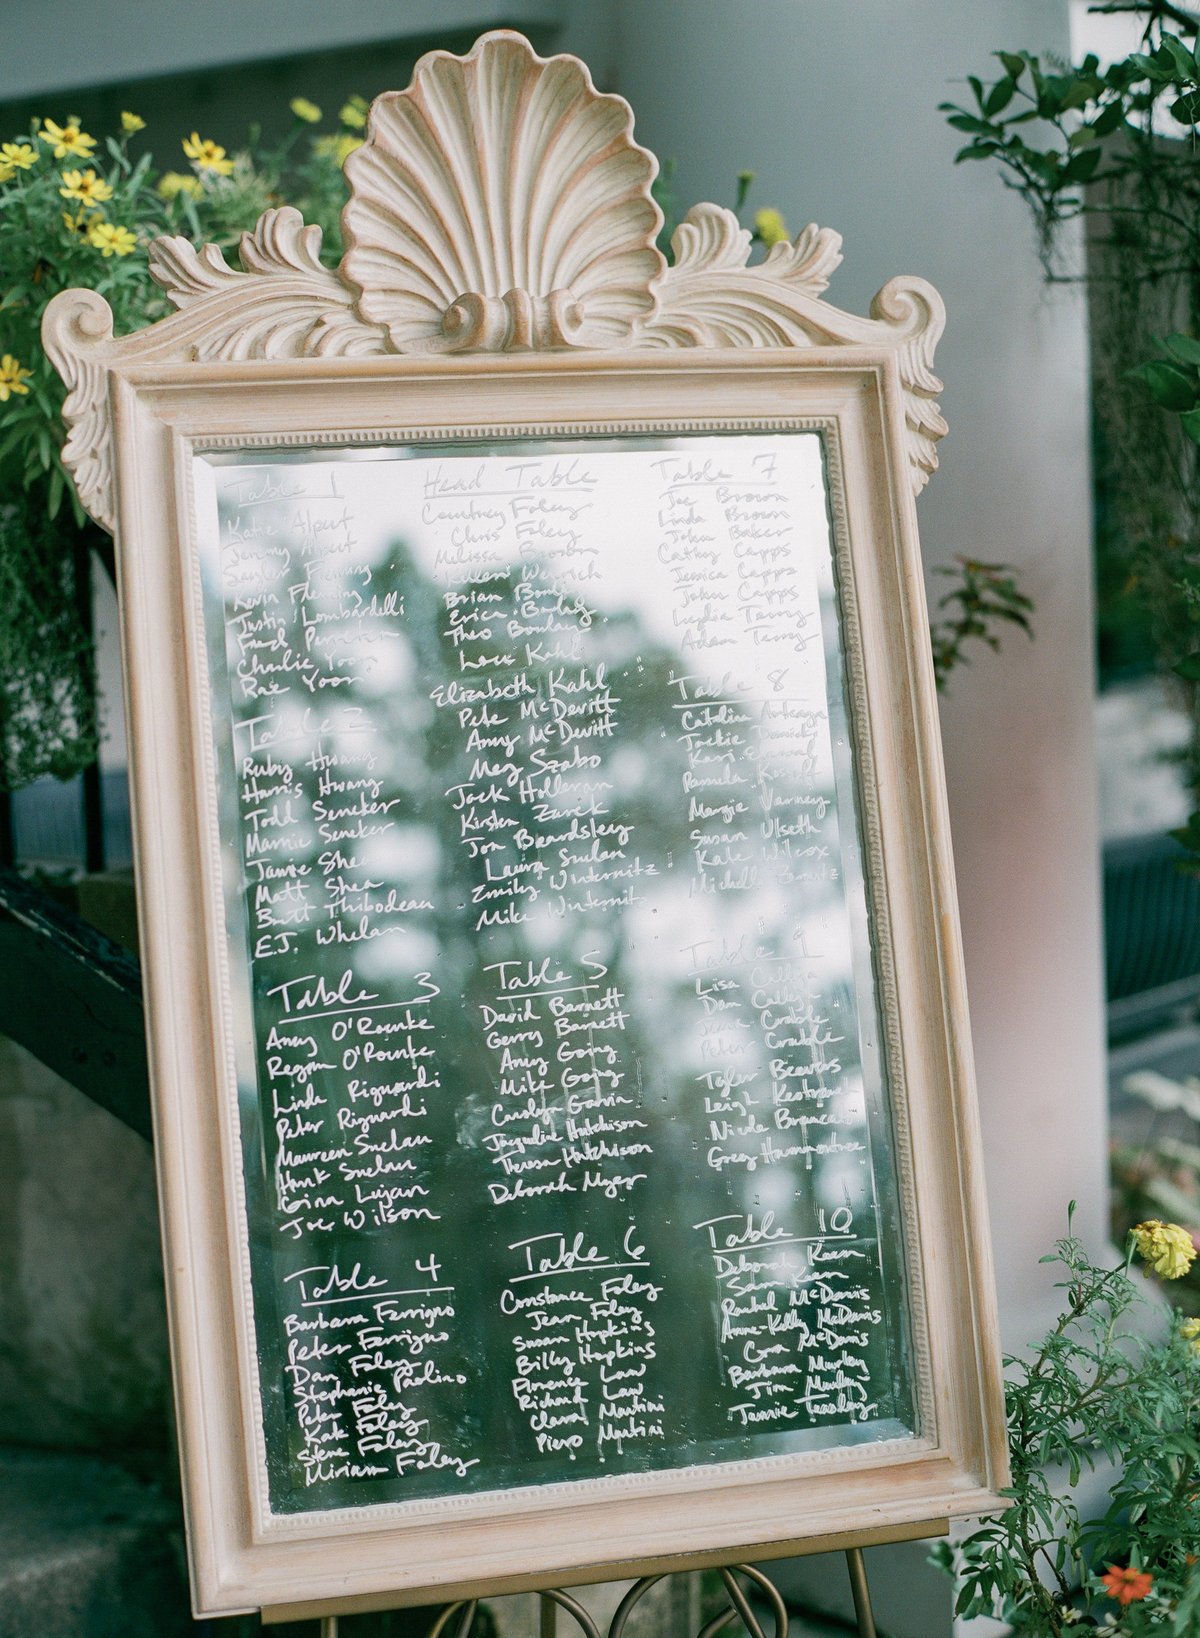 Table 1
Katie Alpert
Jeremy Alpert
Fleming
Kevin Fleming
Justin Lombardelli
Fred
Charlie Yoon
Rae Yoon
Table 2
Ruby Hwang
Harris Hwang
Todd Seneker
Marnie Seneker
Jamie Shea
Matt Shea
Britt Thibodeau
E.J. Whelan
Table 3
Amy O'Rourke
Regan O'Rourke
Linda Rignardi
Peter Rignardi
Maureen Snelan
Hank Snelan
Gina Lujan
Joe Wilson
Table 4
Barbara Ferrigno
Peter Ferrigno
Dan Foley
Stephanie Paolino
Peter Foley
Kate Foley
Steve Foley
Miriam Foley
Head Table
Courtney Foley
Chris Foley
Melissa Brown
Brian
Erica
Theo Boulay
Kahl
Elizabeth Kahl
Pete McDevitt
Amy McDevitt
Meg Szabo
Jack Holleran
Kirsten Zurek
Jon Beardsley
Laura Snelan
Emily Winternitz
Mike Winternitz
Table 5
David Barnett
Gerry Barnett
Amy Going
Mike Going
Carolyn Garvin
Jacqueline Hutchison
Theresa Hutchison
Deborah Myer
Table 6
Constance Foley
Jean Foley
Susan Hopkins
Billy Hopkins
Florence Law
Richard Law
Clara Martini
Piero Martini
Table 7
Joe Brown
Linda Brown
John Baker
Cathy Capps
Jessica Capps
John Capps
Lydia Terry
Adam Terry
Table 8
Catalina
Jackie
Pamela
Margie Varney
Susan Ulseth
Kate Wilcox
Michelle
Table 9
Lisa
Dan
Crable
Peter Crable
Tyler Beavers
Leigh
Nicole
Greg Hammontree
Table 10
Deborah Keen
Sam Keen
Rachel McDanis
Anne-Kelly McDanis
Cora McDanis
Barbara Murley
Jim Murley
Jannie Teasley